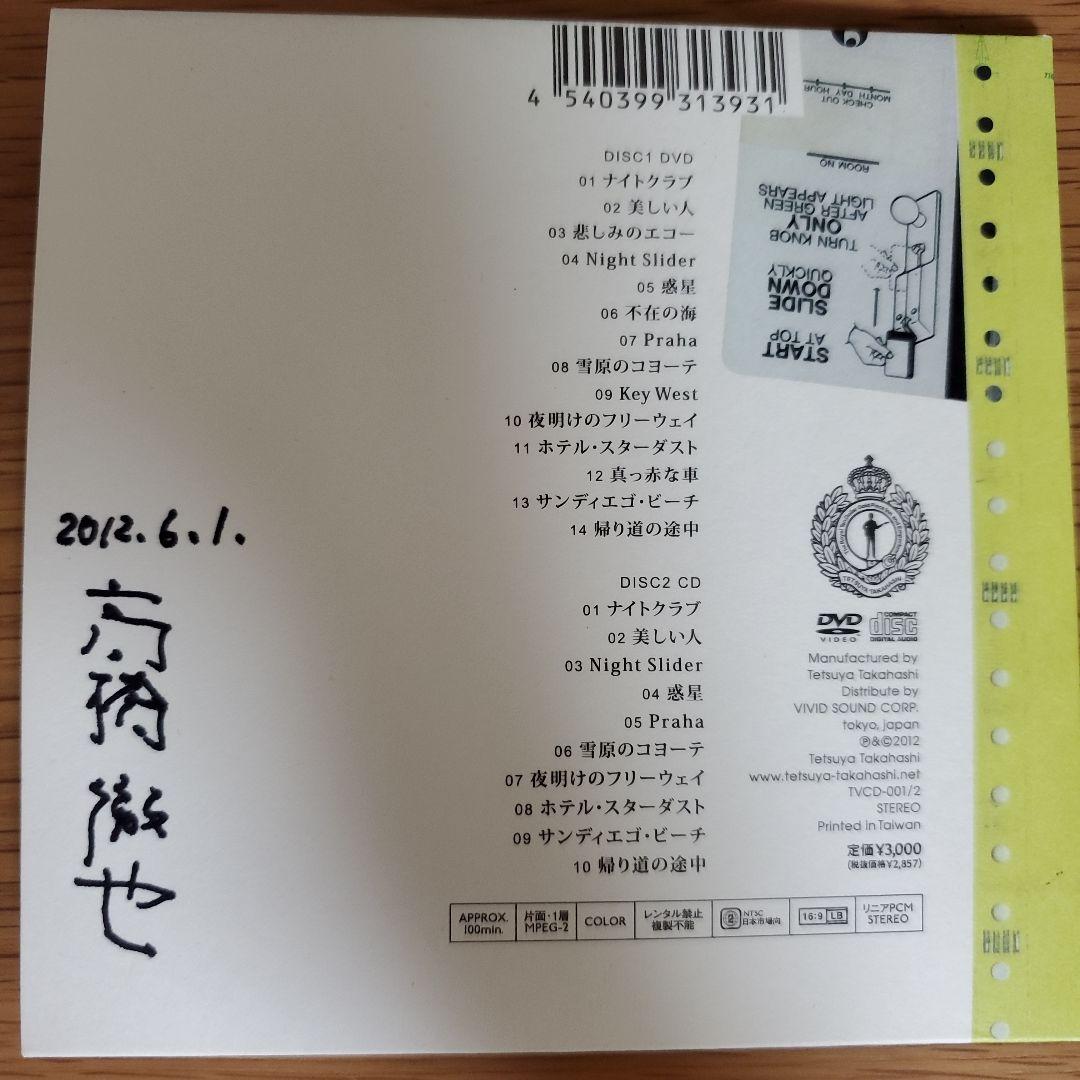 4 540399 313931
DISC1 DVD
01 ナイトクラブ
02 美しい人
03 悲しみのエコー
04 Night Slider
05 惑星
06 不在の海
07 Praha
08 雪原のコヨーテ
09 Key West
10 夜明けのフリーウェイ
11 ホテル・スターダスト
12 真っ赤な車
13 サンディエゴ・ビーチ
14 帰り道の途中
DISC2 CD
01 ナイトクラブ
02 美しい人
03 Night Slider
04 惑星
05 Praha
06 雪原のコヨーテ
07 夜明けのフリーウェイ
08 ホテル・スターダスト
09 サンディエゴ・ビーチ
10 帰り道の途中
2012.6.1.
高橋徹也
CHECK OUT
MONTH DAY HOUR
ROOM NO
START
AT TOP
SLIDE
DOWN
QUICKLY
TURN KNOB
ONLY
AFTER GREEN
LIGHT APPEARS
TETSUYA TAKAHASHI
DVD
VIDEO
COMPACT
disc
DIGITAL AUDIO
Manufactured by
Tetsuya Takahashi
Distribute by
VIVID SOUND CORP.
tokyo, japan
℗&©2012
Tetsuya Takahashi
www.tetsuya-takahashi.net
TVCD-001/2
STEREO
Printed in Taiwan
定価¥3,000
(税抜価格¥2,857)
APPROX.
100min.
片面・1層
MPEG-2
COLOR
レンタル禁止
複製不能
2
NTSC
日本市場向
16:9 LB
リニアPCM
STEREO